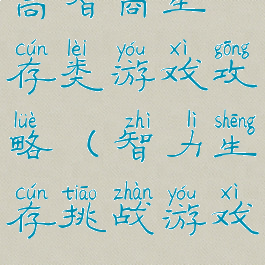 高智商生
cún lèi yóu xì gōng
存类游戏攻
lüè zhì lì shēng
略（智力生
cún tiāo zhàn yóu xì
存挑战游戏